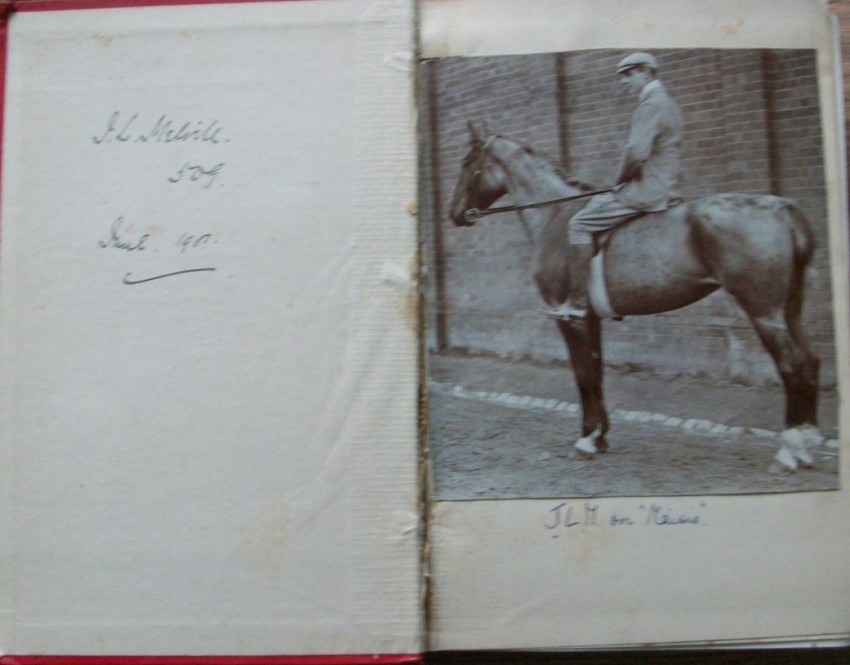 J. L. Melvill.
5DG.
June. 1901.
J L M. on "Meisie".